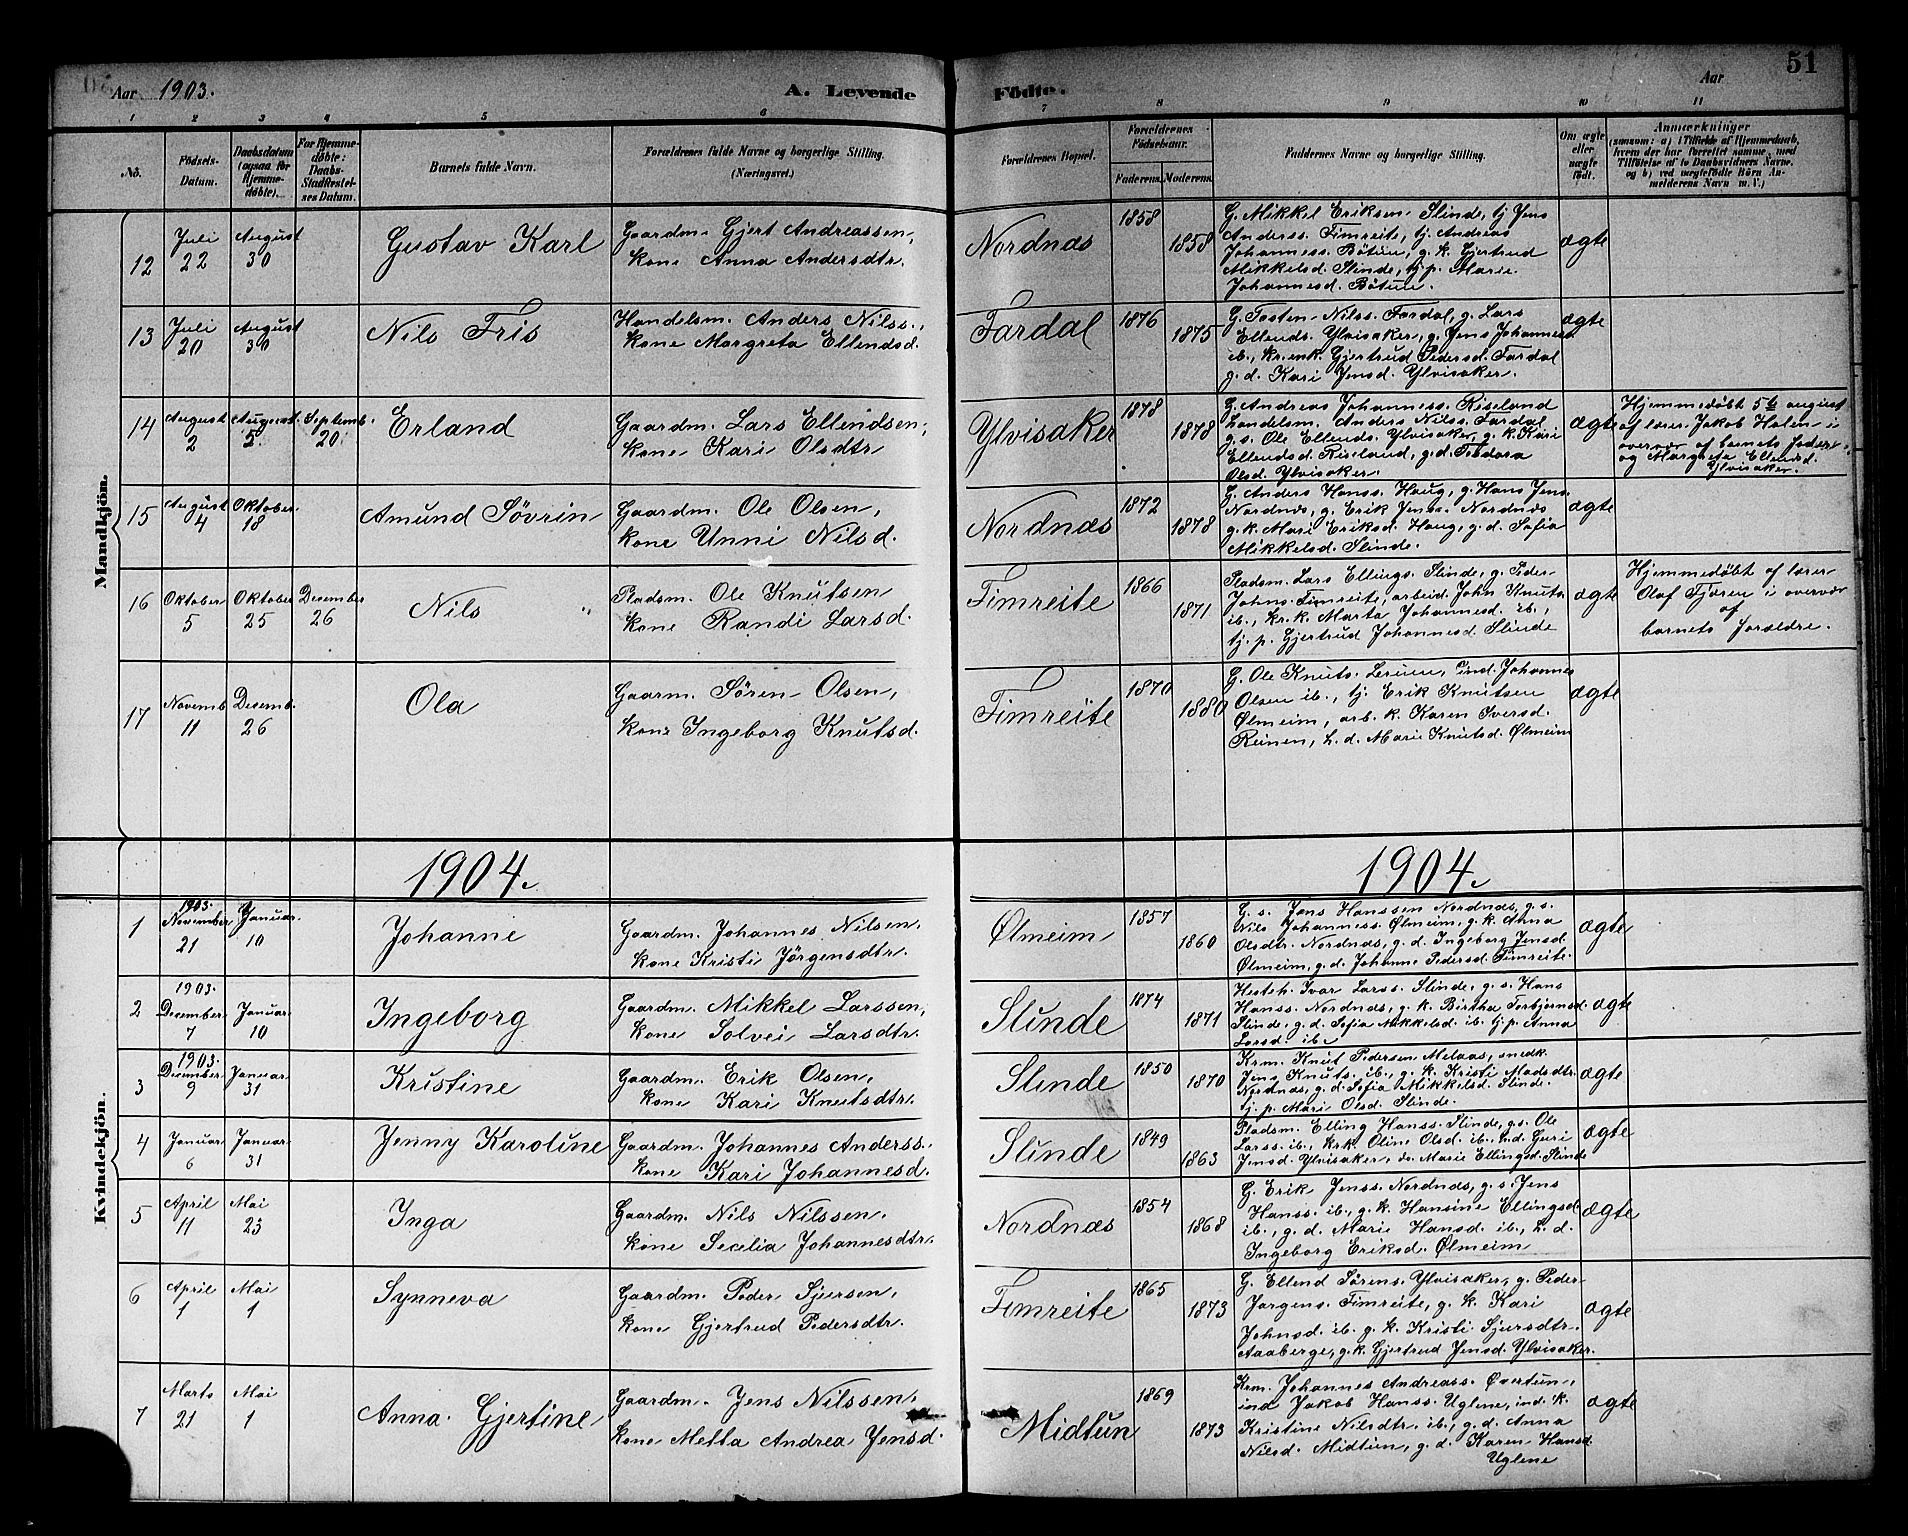 Aar 1903. A. Levende Födte. Aar 51
1 2 3 4 5 6 7 8 9 10 11
No.
Födsels-Datum.
Daabsdatum (ogsaa for Hjemmedöbte).
For Hjemmedöbte: Daabs-Stadfæstelses Datum.
Barnets fulde Navn.
Forældrenes fulde Navne og borgerlige Stilling.
(Næringsvei.)
Forældrenes Bopæl.
Forældrenes Födselsaar.
Faderens. Moderens.
Faddernes Navne og borgerlige Stilling.
Om ægte eller uægte födt.
Anmærkninger
(saasom: a) i Tilfælde af Hjemmedaab, hvem der har forrettet samme, med Tilföielse af to Daabsvidners Navne, og b) ved uægtefödte Börn Anmelderens Navn m. V.)
Mandkjön.
12 Juli 22 August 30 Gustav Karl
Gaardm. Gjert Andreassen,
kone Anna Andersdtr.
Nordnæs 1858 1858
G. Mikkel Eriksen Slinde, tj. Jens
Anderss. Fimreite, tj. Andreas
Johanness. Bötun, g. k. Gjertrud
Mikkelsd. Slinde, tj. p. Marie
Johannesd. Bötun.
ægte
13 Juli 20 August 30 Nils Fris
Handelsm. Anders Nilss.,
kone Margreta Ellendsd.
Fardal 1876 1875
G. Tosten Nilss. Fardal, g. Lars
Ellends. Ylvisaker, g. Jens Johanness.
ib., kr. enk. Gjertrud Pedersd. Fardal
g. d. Kari Jensd. Ylvisaker.
ægte
14 August 2 August 5 Septemb. 20 Erland
Gaardm. Lars Ellendsen,
kone Kari Olsdtr
Ylvisaker 1878 1878
G. Andreas Johanness. Riseland
Landelsm. Anders Nilss. Fardal,
g. s. Ole Ellends. Ylvisaker, g. k. Kari
Ellendsd. Riseland, g. d. Teodora
Olsd. Ylvisaker.
ægte
Hjemmedøbt 5te august
af lærer Jakob Holen i
overvær af barnets fader
og Margreta Ellendsd.
Ylvisaker.
15 August 4 Oktober 18 Amund Sövrin
Gaardm. Ole Olsen,
kone Unni Nilsd.
Nordnæs 1872 1878
G. Anders Hanss. Haug, g. Hans Jens.
Nordnæs, g. Erik Jenss. Nordnæs
g. k. Mari Eriksd. Haug, g. d. Sofia
Mikkelsd. Slinde.
ægte
16 Oktober 5 Oktober 25 Desember 26 Nils
Pladsm. Ole Knutsen
kone Randi Larsd.
Fimreite 1866 1871
Pladsm. Lars Ellings. Slinde, g. Peder
Johns. Fimreite, arbeid. John Knuts.
ib., kr. k. Marta Johannesd. ib.,
tj. p. Gjertrud Johannesd. Slinde
ægte
Hjemmedøbt af lærer
Olaf Fjæren i overvær
af
barnets forældre.
17 Novemb 11 Desemb. 26 Ola
Gaarm. Sören Olsen,
kone Ingeborg Knutsd.
Fimreite 1870 1880
G. Ole Knuts. Lerum, ind. Johannes
Olsen ib., tj. Erik Knutsen
Ølmeim, arb. k. Karen Iversd.
Reinen, h. d. Marie Knutsd. Ølmeim
ægte
1904. 1904.
Kvindekjön.
1 1903. November 21 Januar 10 Johanne
Gaardm. Johannes Nilsen.
kone Kristi Jørgensdtr.
Ølmeim 1857 1860
G. s. Jens Hanssen Nordnæs, g. s.
Nils Johanness. Ølmeim, g. k. Anna
Olsdtr. Nordnæs, g. d. Ingeborg Jensd.
Ølmeim, g. d. Johanne Pedersd. Fimreite.
ægte
2 1903. December 7 Januar 10 Ingeborg
Gaardm. Mikkel Larssen,
kone Solvei Larsdtr.
Slinde 1874 1871
Hesteh. Ivar Larss. Slinde, g. s. Hans
Hanss. Nordnæs, g. k. Birtha Torbjørnsd.
Slinde, g. d. Sofia Mikkelsd. ib. tj. p. Anna
Larsd. ib.
ægte
3 1903. December 9 Januar 31 Kristine
Gaardm. Erik Olsen,
kone Kari Knutsdtr.
Slinde 1850 1870
Krm. Knut Pedersen Melaas, snedk.
Jens Knuts. ib., g. k. Kristi Madsdtr.
Nordnæs, g. d. Sofia Mikkelsd. Slinde.
tj. p. Mari Olsd. Slinde.
ægte
4 Januar 6 Januar 31 Jenny Karoline
Gaardm. Johannes Anderss.
kone Kari Johannesd.
Slinde 1849 1863
Pladsm. Elling Hanss. Slinde, g. s. Ole
Larss. ib., krk. Oline Olsd. ib., h. d. Guri
Jensd. Ylvisaker, do. Marie Ellingsd. Slinde
ægte
5 April 11 Mai 23 Inga
Gaardm. Nils Nilssen.
kone Secelia Johannesdtr.
Nordnæs 1854 1868
G. Erik Jenss. Nordnæs, g. s. Jens
Hanss. ib., g. k. Hansine Ellingsd.
ib., g. d. Marie Hansd. ib., h. d.
Ingeborg Eriksd. Ølmeim
ægte
6 April 1 Mai 1 Synneva
Gaardm. Peder Sjursen,
kone Gjertrud Pedersdtr.
Fimreite 1865 1873
G. Ellend Sörens. Ylvisaker, g. Peder
Jørgens. Fimreite, g. k. Kari
Johnsd. ib. g. k. Kristi Sjursdtr.
Aaaberge, g. k. Gjertrud Jensd. Ylvisaker.
ægte
7 Marts 21 Mai 1 Anna Gjertine
Gaardm. Jens Nilssen,
kone Metta Andrea Jensd.
Midtun 1869 1873
Krm. Johannes Andreass. Øvertun,
ind Jakob Hanss. Uglene, ind. k.
Kristine Nilsdtr. ib., g. d. Anna
Nilsd. Midtun, g. d. Karen Hansd.
Uglene
ægte